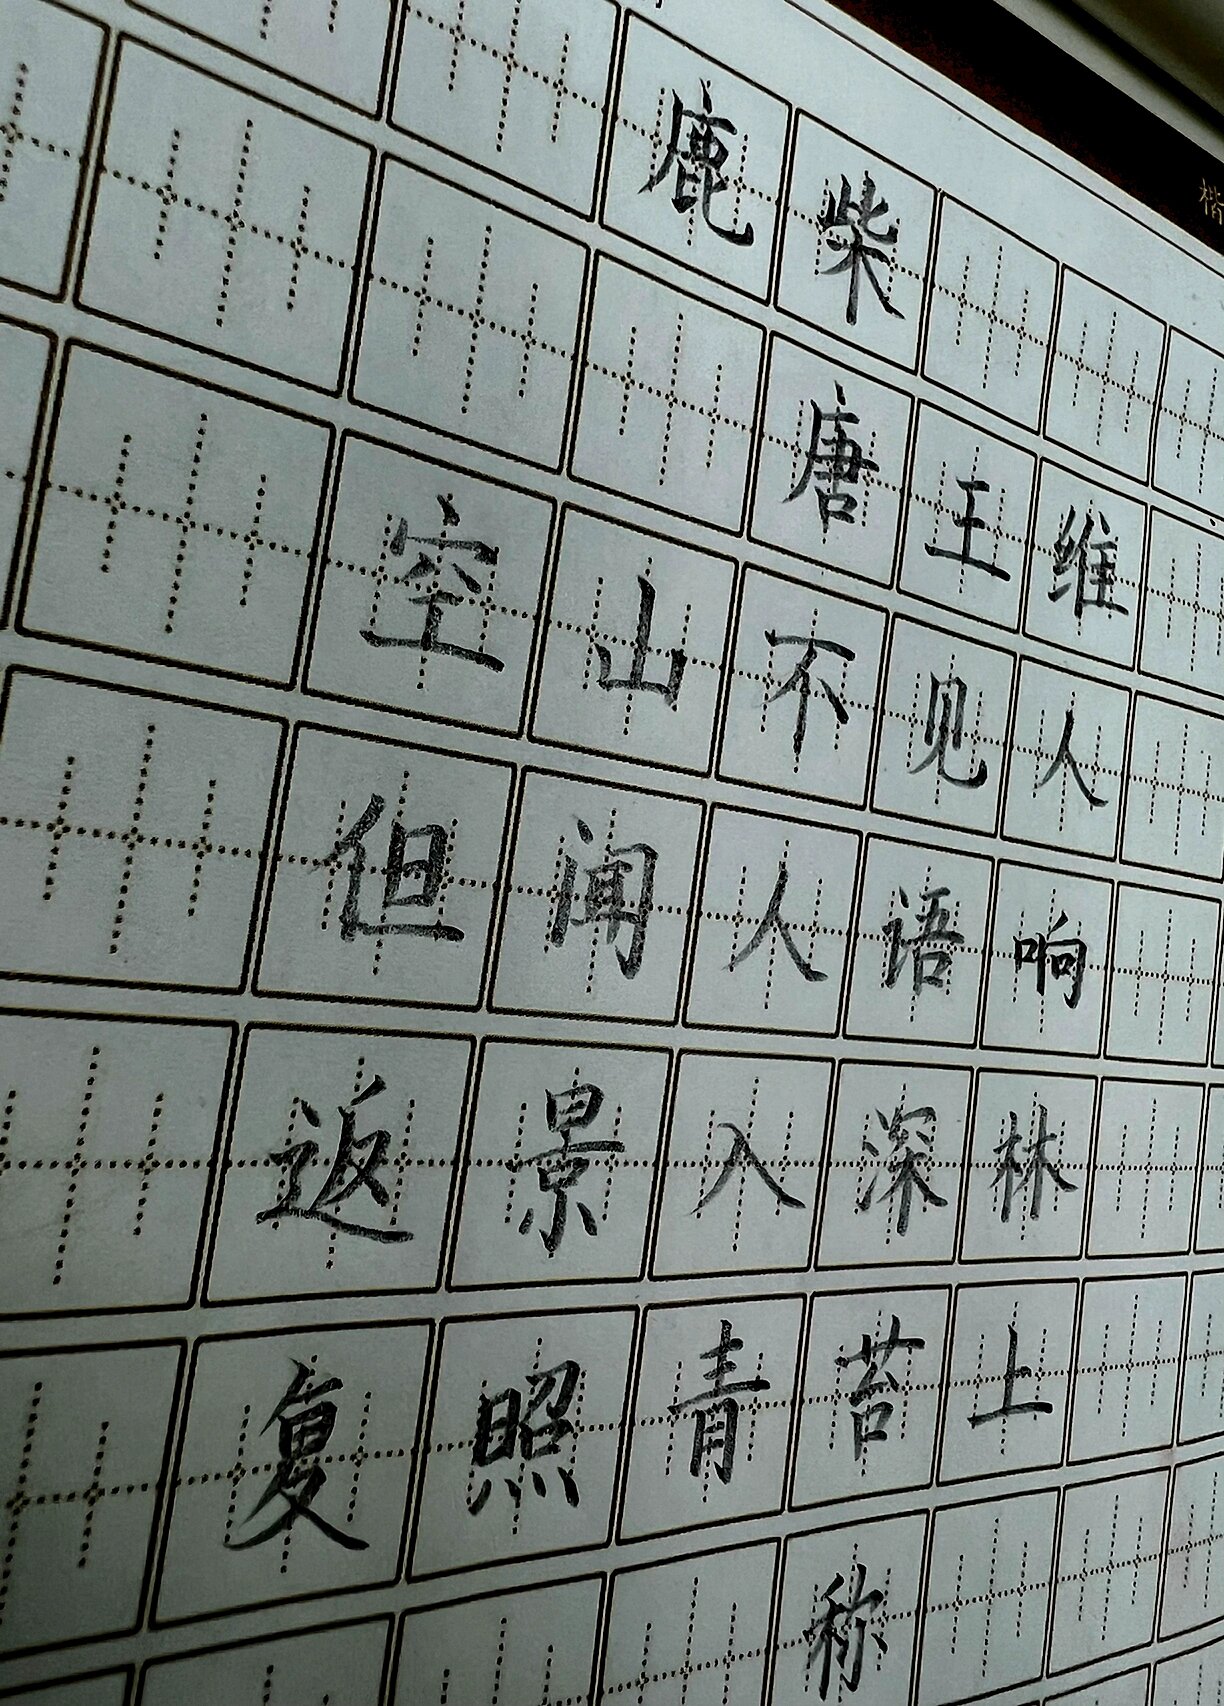 鹿柴
唐王维
空山不见人
但闻人语响
返景入深林
复照青苔上
称
楷